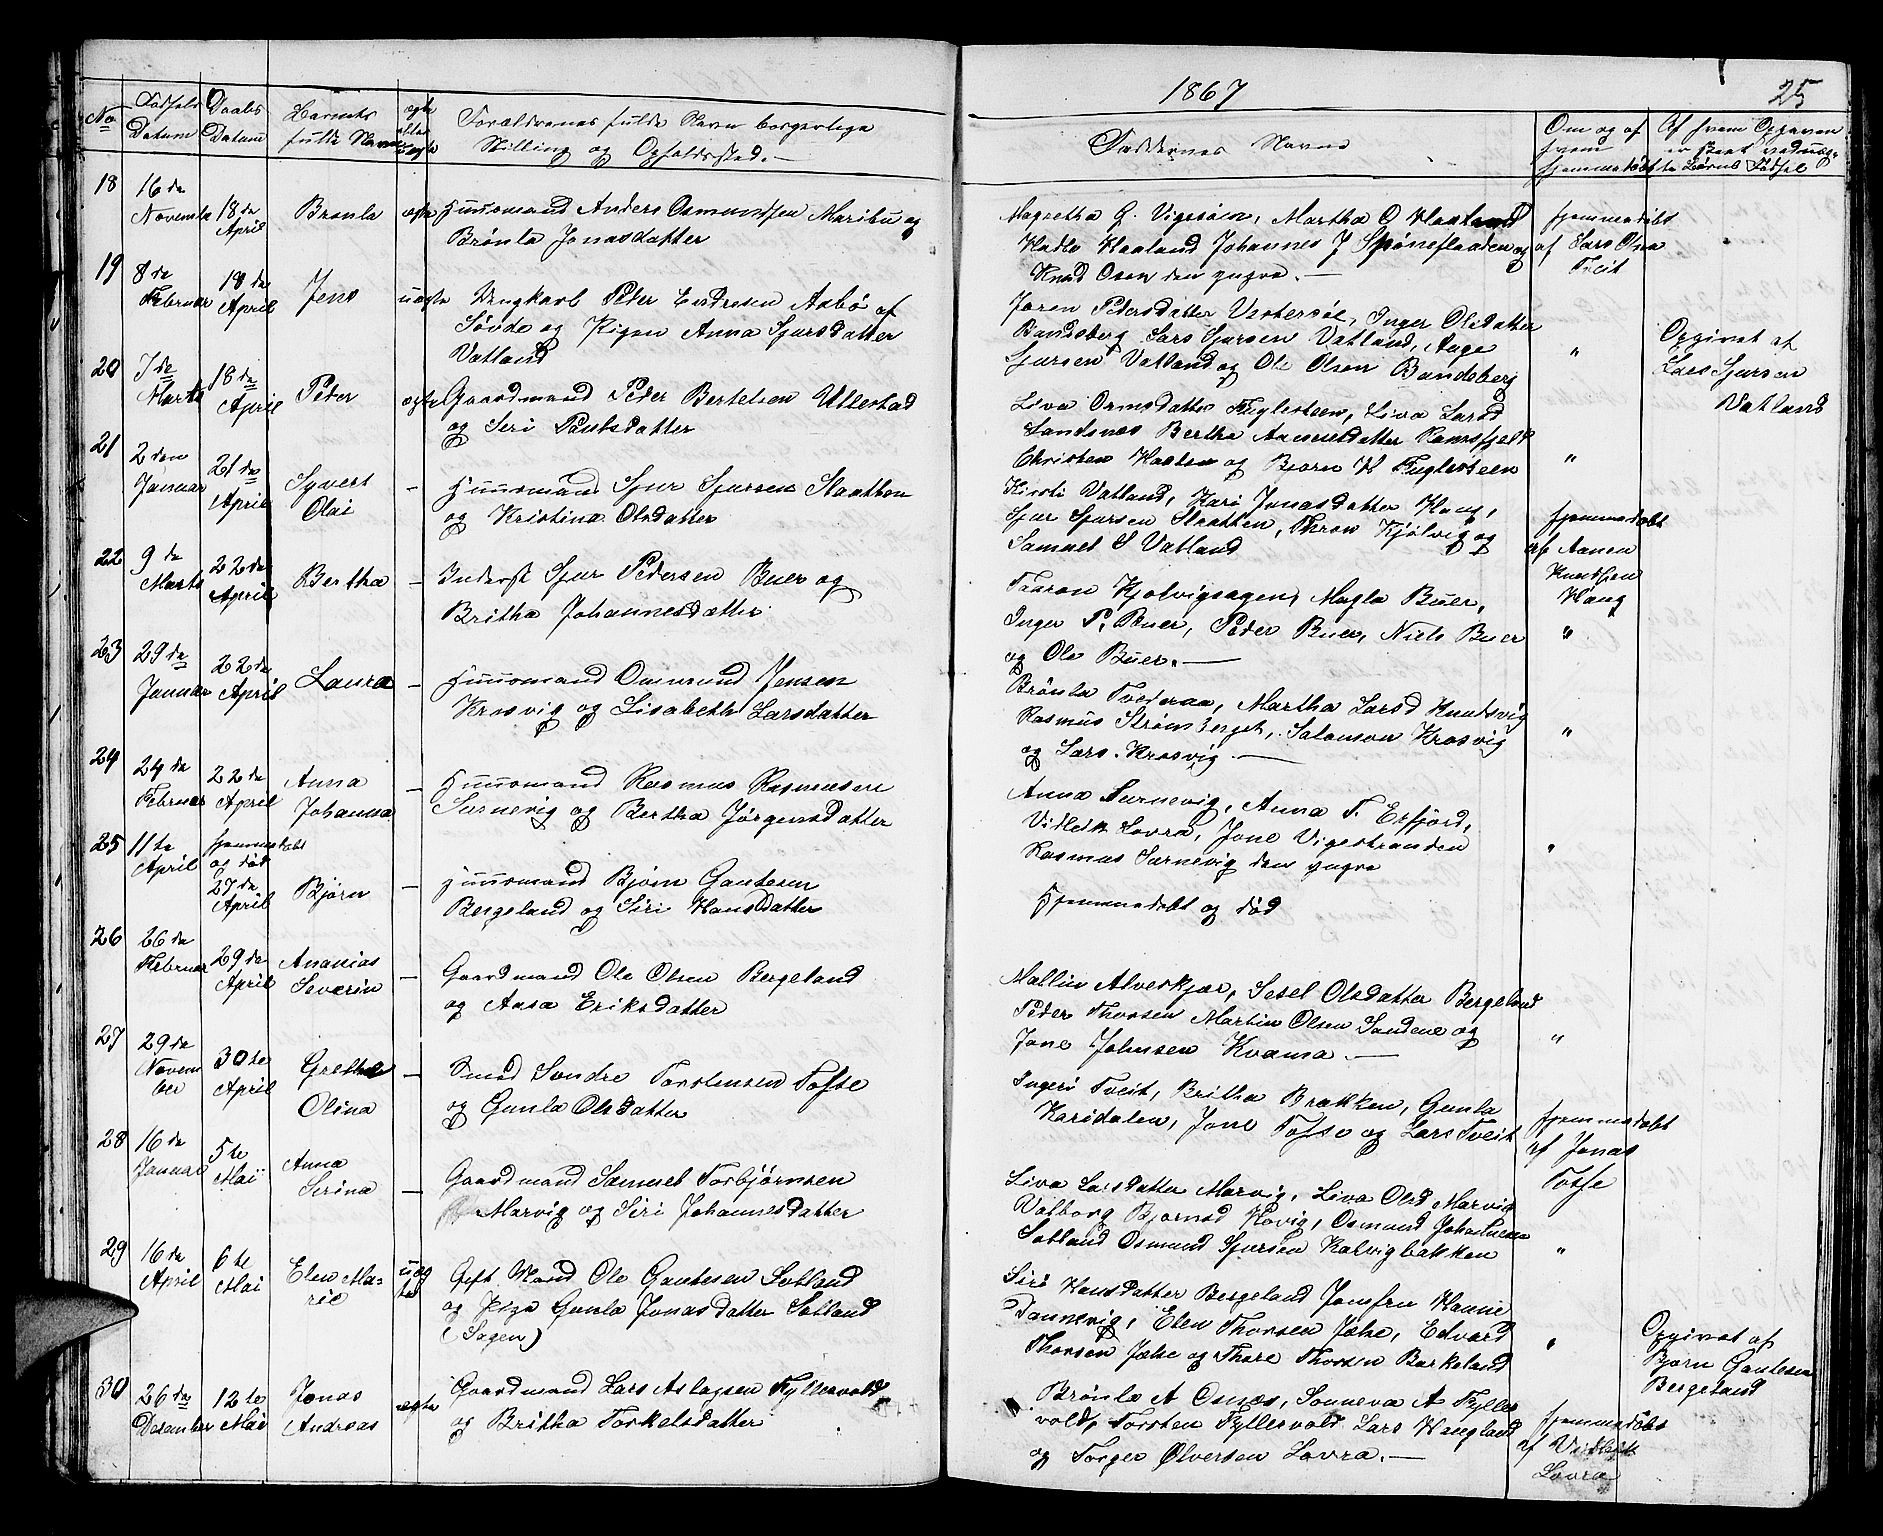 1867
25
No
Fødsels Datum
Daabs Datum
Barnets fulde Navn
ægte eller uægte
Forældrenes fulde Navn borgerlige
Stilling og Opholdssted.—
Faddernes Navne
Om og af hvem hjemmedøbt
Af hvem Opgaven er Skeet veduæg- te Børns Fødsel
18
16de Novembr
18de April
Brønla
ægte
Huusmand Anders Osmundsen Maribu og
Brønla Jonasdatter
Magretha G. Vigesøen, Martha O Haaland
Hadle Haaland Johannes J Spøneflaaden og
Knud Osen den yngre.—
hjemmedøbt
af Lars Olsa
Tveit
19
8de Februar
18de April
Jens
uægte
Ungkarl Peder Endresen Aabø af
Søvde og Pigen Anna Sjursdatter
Vatland
Joren Pedersdatter Vestersøe, Inger Olsdatter
Bandsberg Lars Sjursen Vatland, Aage
Sjursen Vatland og Ole Olsen Bandsberg
"
Opgivet af
Lars Sjursen
Vatland
20
7de Marts
18de April
Peder
ægte
Gaardmand Peder Bertelsen Ullestad
og Siri Poulsdatter
Liva Ormsdatter Fuglesteen, Liva Larsd
Sandsnes Bertha Aamundsdatter Ramsfjeld
Christen Hatten og Bjørn K Fuglesteen
"
21
2den Januar
21de April
Syvert
Olai
–
Huusmand Sjur Sjursen Slaatten
og Kristina Olsdatter
Kirsti Vatland, Kari Jonasdatter Haug,
Sjur Sjursen Slaatten, Thron Kjølvig og
Samuel S Vatland
hjemmedøbt
af Aanen
Knudsen
Haug
22
9de Marts
22de April
Bertha
–
Inderst Sjur Pedersen Buer og
Britha Johannesdatter
Taaron Kjølvigsagen, Magla Buer,
Inger P. Buer, Peder Buer, Niels Buer
og Ole Buer.—
"
23
29de Januar
22de April
Laura
–
Huusmand Osmund Jensen
Krosvig og Lisabeth Larsdatter
Brønla Tvederaa, Martha Larsd Knudsvig
Rasmus Strømberget, Salomon Krosvig
og Lars Krosvig.—
"
24
24de Februar
22de April
Anna
Johanna
–
Huusmand Rasmus Rasmusen
Sarnevig og Bertha Jørgensdatter
Anna Sarnevig, Anna T. Erfjord,
Vitleik Lovra, Jone Vigestranden
Rasmus Sarnevig den yngre
"
25
11te April
hjemmedøbt
og død
27de April
Bjørn
–
Huusmand Bjørn Gautesen
Bergeland og Siri Hansdatter
Hjemmedøbt og død
26
26de Februar
29de April
Ananias
Severin
–
Gaardmand Ole Olsen Bergeland
og Aasa Eriksdatter
Mallin Alverkjær, Sesel Olsdatter Bergeland
Peder Thorsen Martin Olsen Sandene og
Jone Johnsen Kvama.—
"
27
29de Novem-
ber
30te April
Grethe
Olina
–
Smed Sondre Torstensen Tofte
og Gunla Olsdatter
Ingeri Tveit, Britha Brakken, Gunla
Karidalen, Jone Tofte og Lars Tveit
hjemmedøbt
af Jonas
Tofte
28
16de Januar
5te Mai
Anna
Serina
–
Gaardmand Samuel Torbjørnsen
Marvig og Siri Johannesdatter
Liva Larsdatter Marvig, Liva Olsd Marvig
Valborg Bjørnsd Hovig, Osmund Johannesen
Sotland Osmund Sjursen Kalvigbakken
"
29
16de April
6te Mai
Elen Ma-
rie
uæg
te
Gift Mand Ole Gautesen Sotland
og Pige Gunla Jonasdatter Sotland
(Sagen)
Siri Hansdatter Bergeland Jomfru Hanne
Dannevig, Elen Thorsen Jelse, Edvard
Thorsen Jelse og Thore Thorsen Barkeland
"
Opgivet af
Bjørn Gautesen
Bergeland
30
26de Desember
12te Mai
Jonas
Andreas
ægte
Gaardmand Lars Aslagsen Fyllesvold
og Britha Torkelsdatter
Brønla A Osnes, Sonneva A Fylles
vold, Torsten Fyllesvold Lars Haugland
og Torger Ølversen Lovra.—
hjemmedøbt
af Vitleik
Lovra